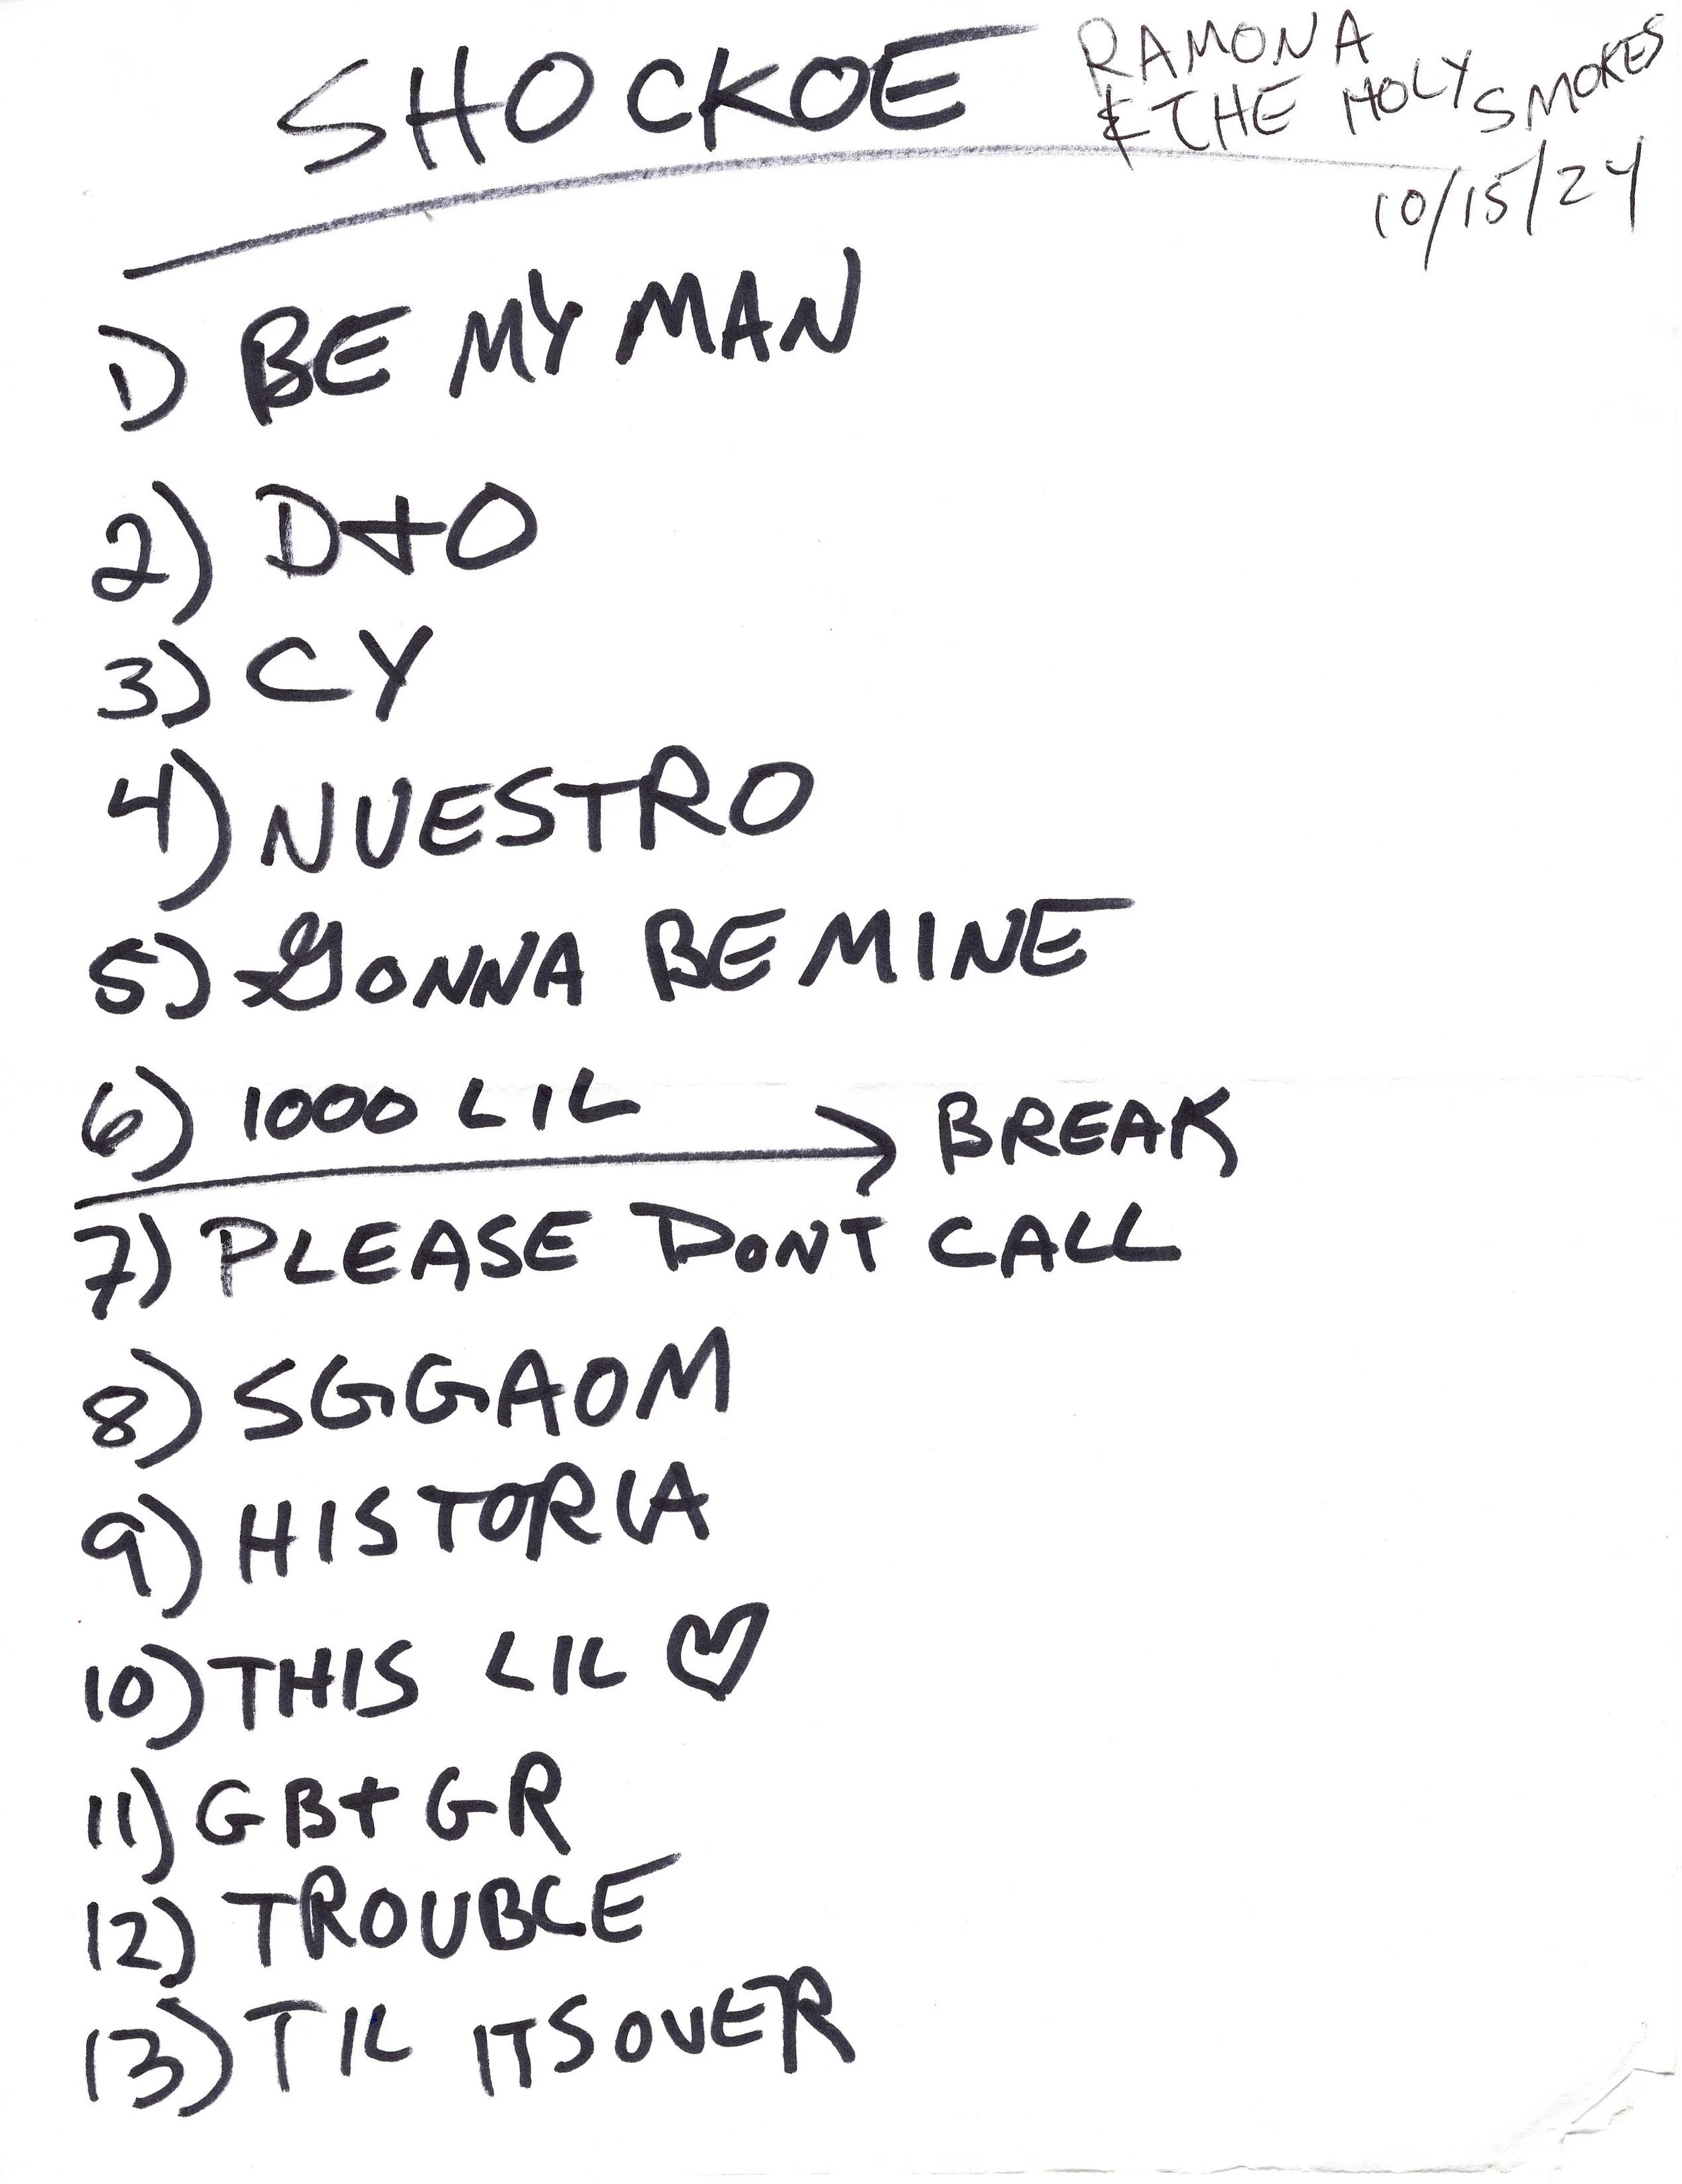 SHOCKOE
RAMONA
& THE HOLY SMOKES
10/15/24
1) BE MY MAN
2) D+O
3) CY
4) NUESTRO
5) GONNA BE MINE
6) 1000 LIL → BREAK
7) PLEASE DONT CALL
8) SGGAOM
9) HISTORIA
10) THIS LIL ♡
11) GB+GR
12) TROUBLE
13) TIL ITS OVER